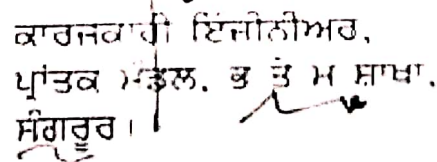 ਕਾਰਜਕਾਰੀ ਇੰਜੀਨੀਅਰ,
ਪ੍ਰਾਂਤਕ ਮੰਡਲ, ਭ ਤੇ ਮ ਸ਼ਾਖਾ,
ਸੰਗਰੂਰ।